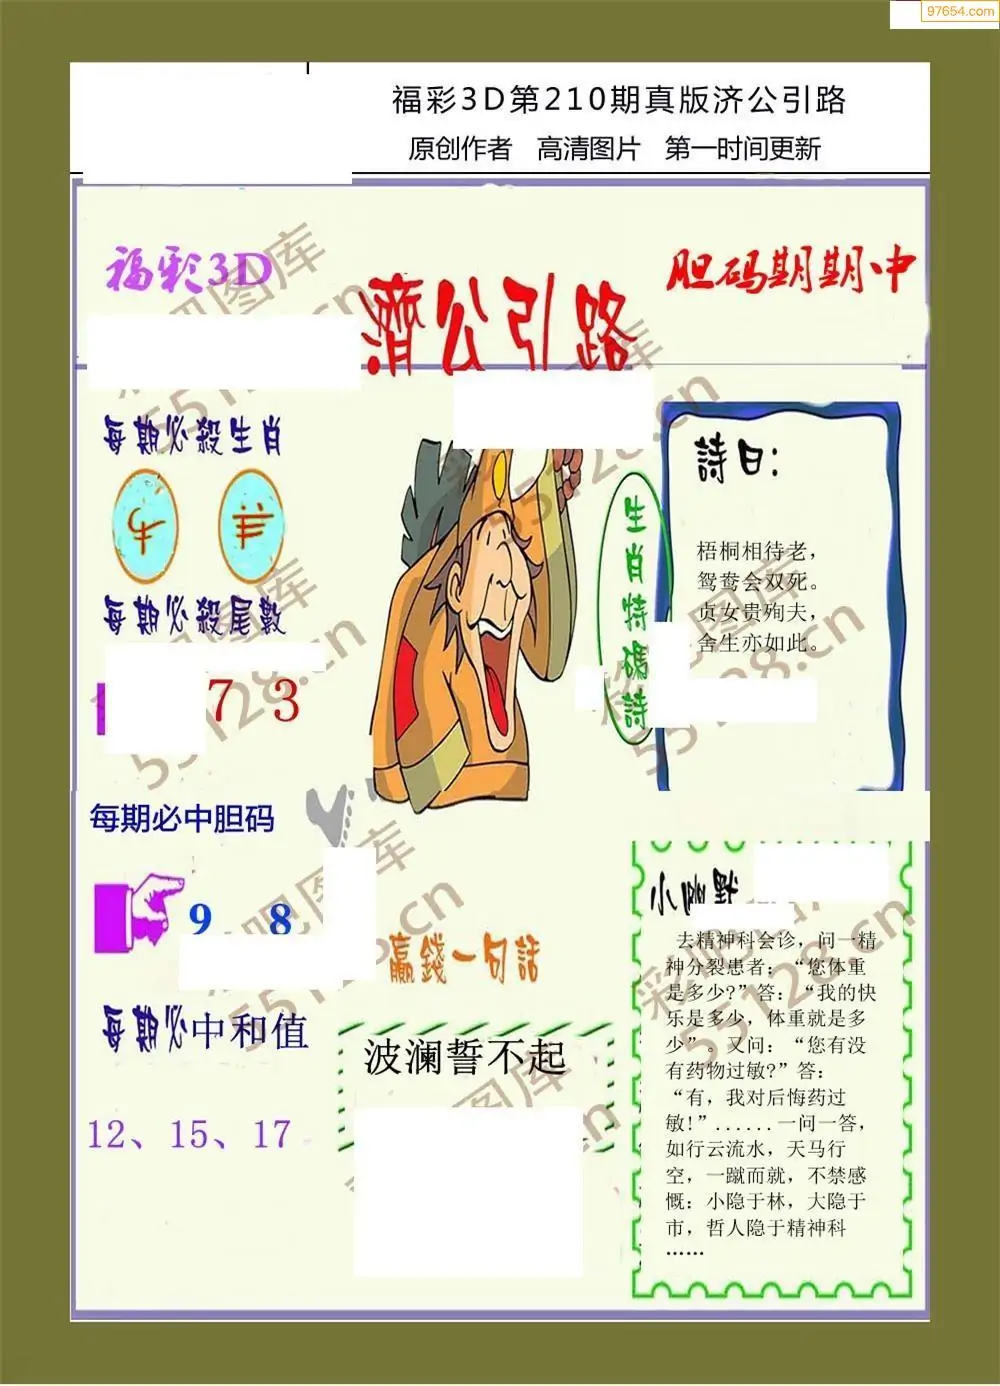 97654.com
福彩3D第210期真版济公引路
原创作者 高清图片 第一时间更新
福彩3D
濟公引路
胆码期期中
每期必殺生肖
牛 羊
每期必殺尾數
7 3
每期必中胆码
9 8
每期必中和值
12、15、17
生肖特碼詩
詩曰:
梧桐相待老，
鸳鸯会双死。
贞女贵殉夫，
舍生亦如此。
赢錢一句話
波澜誓不起
小幽默
去精神科会诊，问一精
神分裂患者：“您体重
是多少?”答：“我的快
乐是多少，体重就是多
少”。又问：“您有没
有药物过敏?”答：
“有，我对后悔药过
敏!”......一问一答，
如行云流水，天马行
空，一蹴而就，不禁感
慨：小隐于林，大隐于
市，哲人隐于精神科
……
彩吧图库
55128.cn